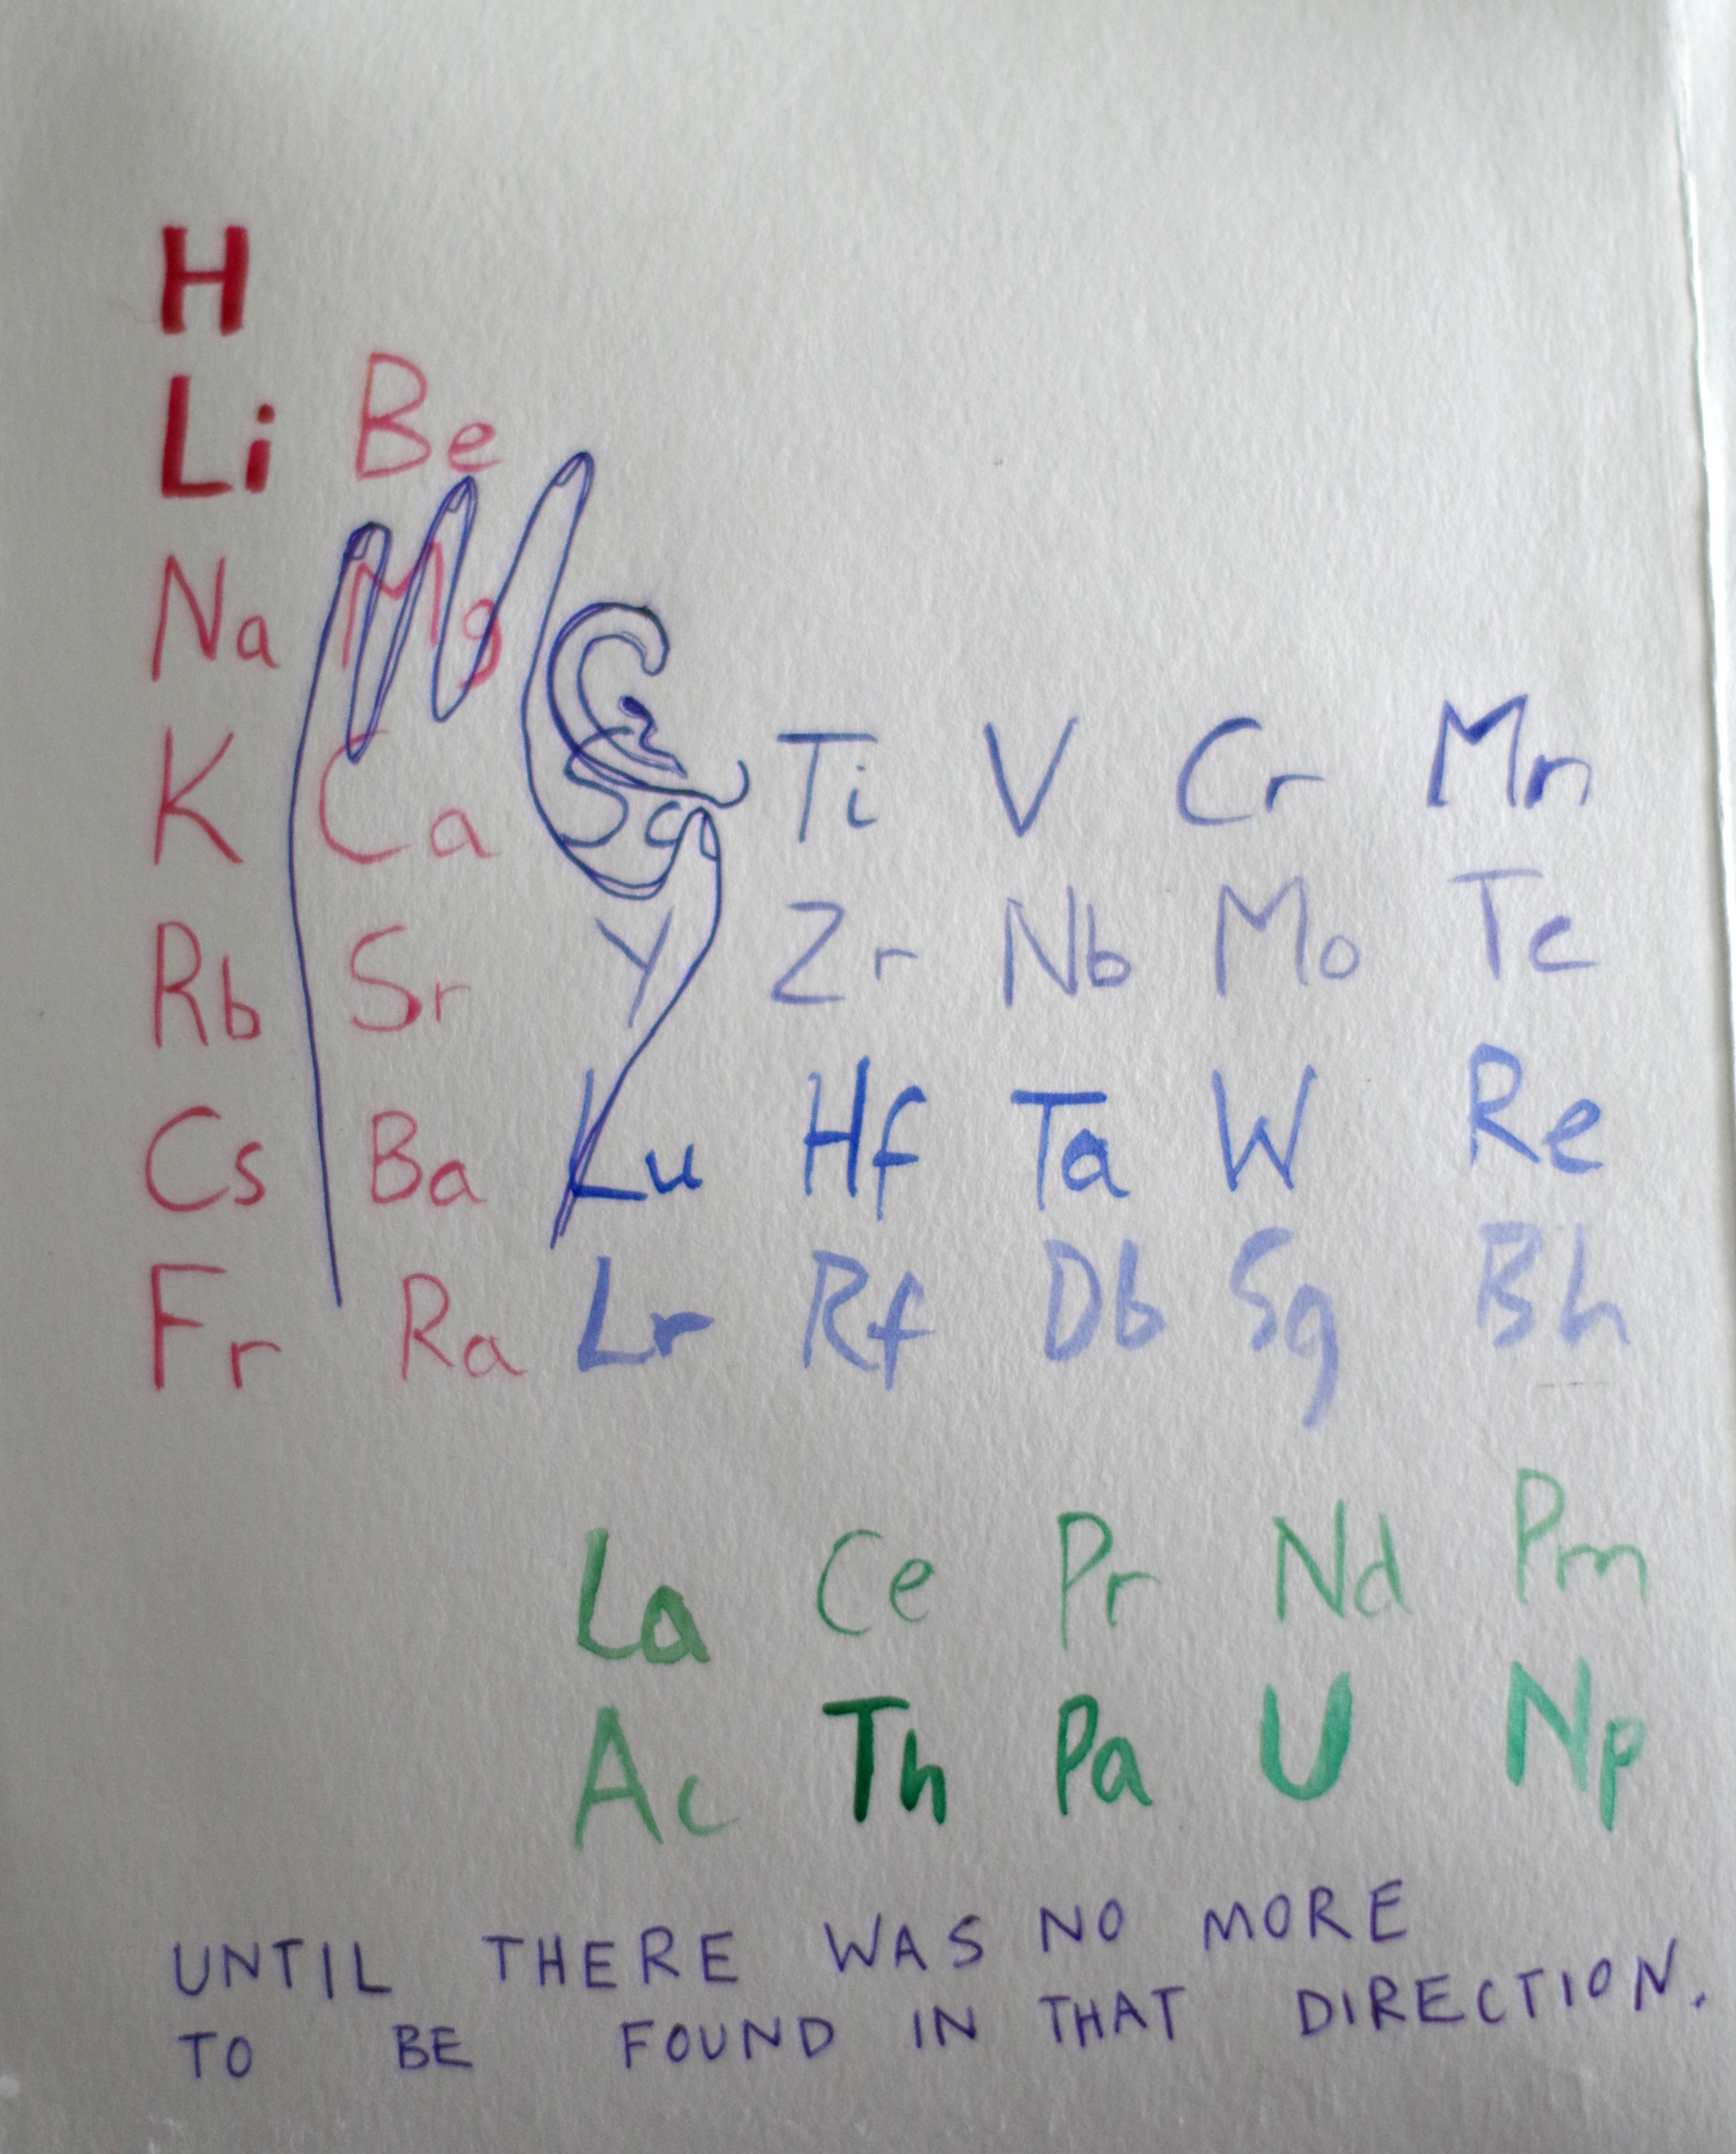 H
Li Be
Na Mg
K Ca Sc Ti V Cr Mn
Rb Sr Y Zr Nb Mo Tc
Cs Ba Lu Hf Ta W Re
Fr Ra Lr Rf Db Sg Bh
La Ce Pr Nd Pm
Ac Th Pa U Np
UNTIL THERE WAS NO MORE
TO BE FOUND IN THAT DIRECTION.